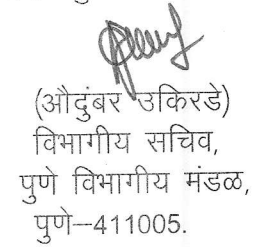 (औदुंबर उकिरडे)
विभागीय सचिव,
पुणे विभागीय मंडळ,
पुणे–411005.